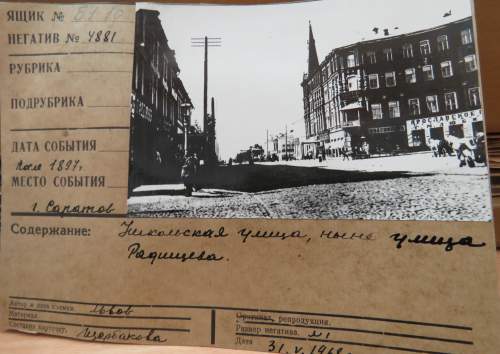 ЯЩИК №
НЕГАТИВ № 4881
РУБРИКА
ПОДРУБРИКА
ДАТА СОБЫТИЯ
После 1897г
МЕСТО СОБЫТИЯ
г. Саратов
ЯРОСЛАВСКОЕ
Содержание: Никольская улица, ныне улица
Радищева.
Автор и дата съемки. Львов
Материал
Составил карточку. Щербакова
Оригинал, репродукция.
Размер негатива.
Дата 31.V.1968